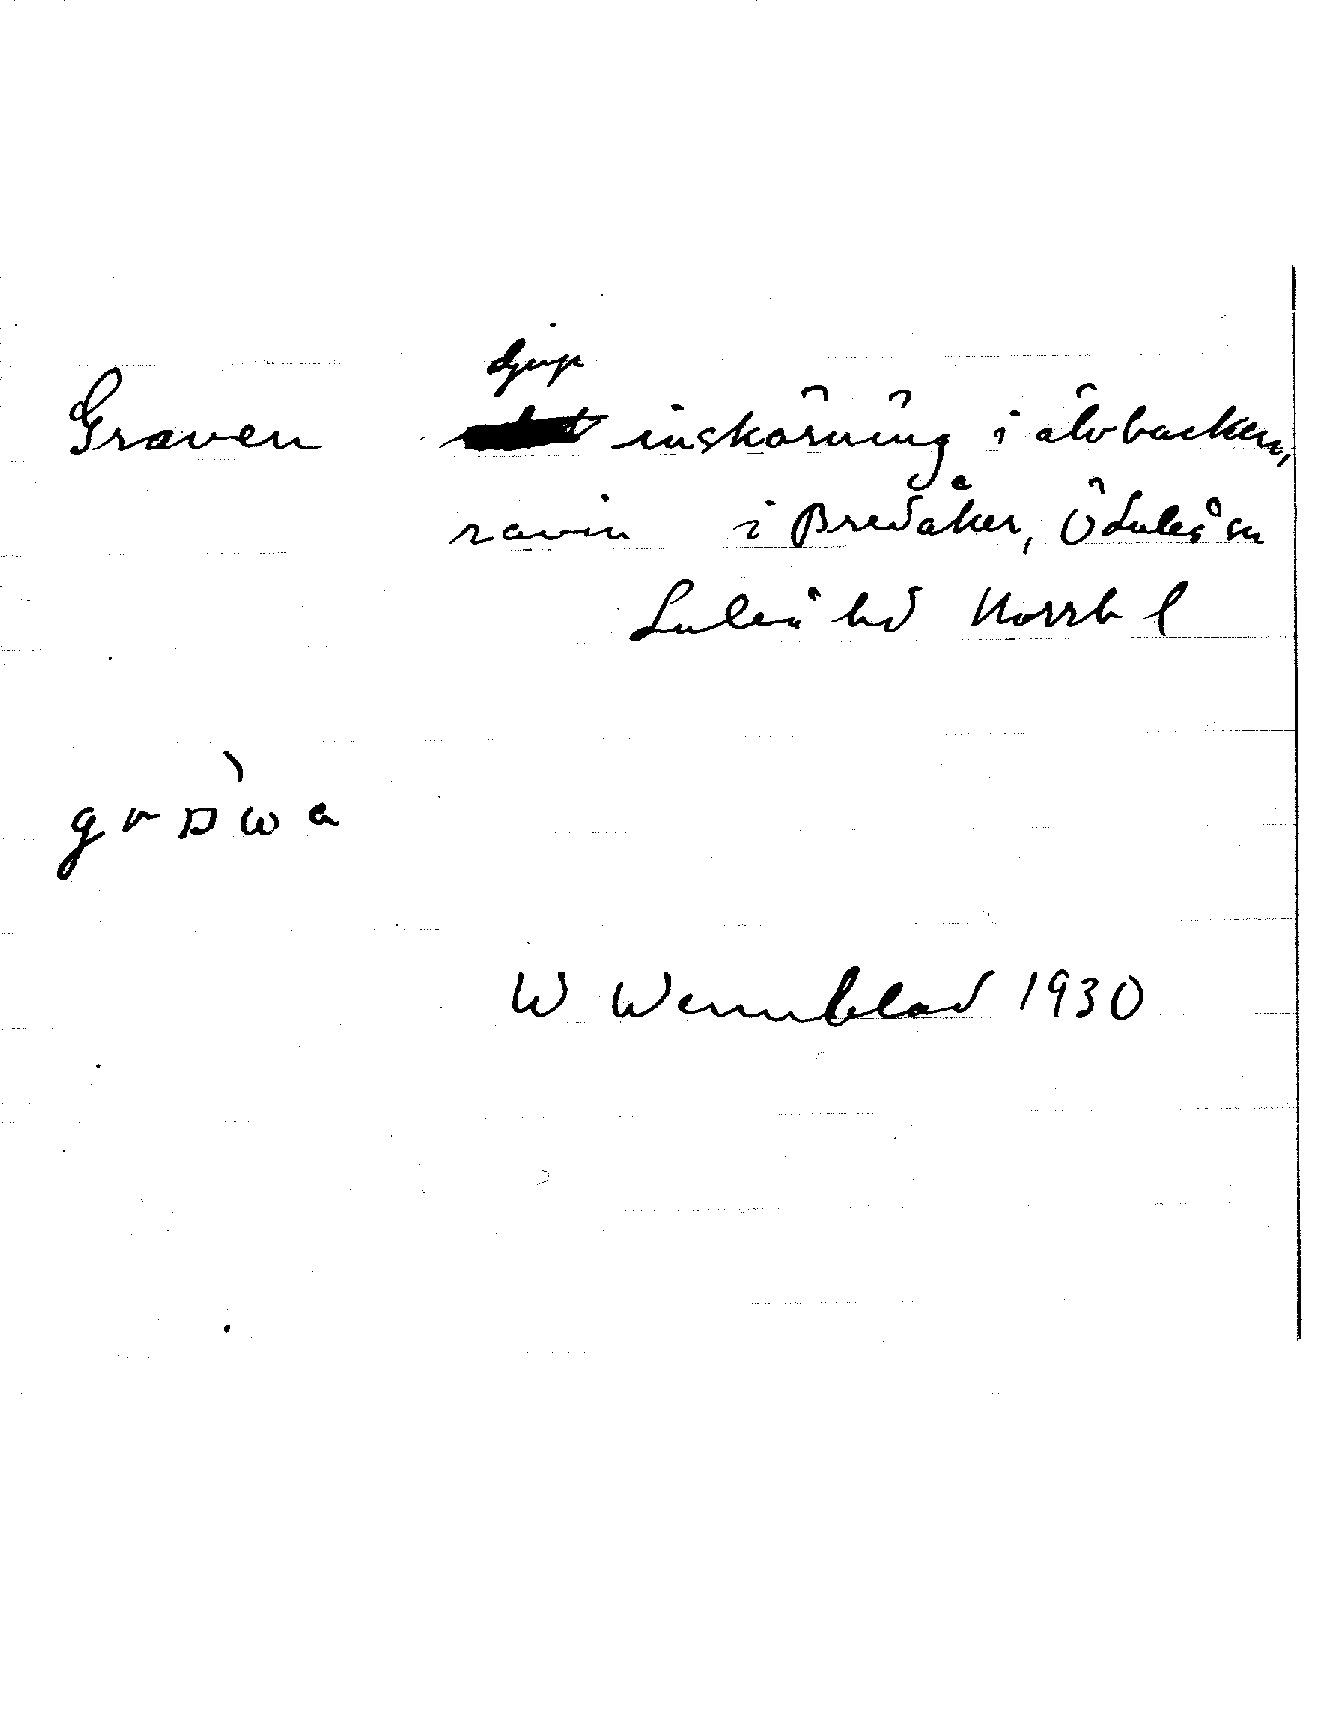 djup
Graven inskärning i älvbacken,
ravin i Bredåker, Ö Luleå sn
Luleå hd Norrb l
W Wennblad 1930